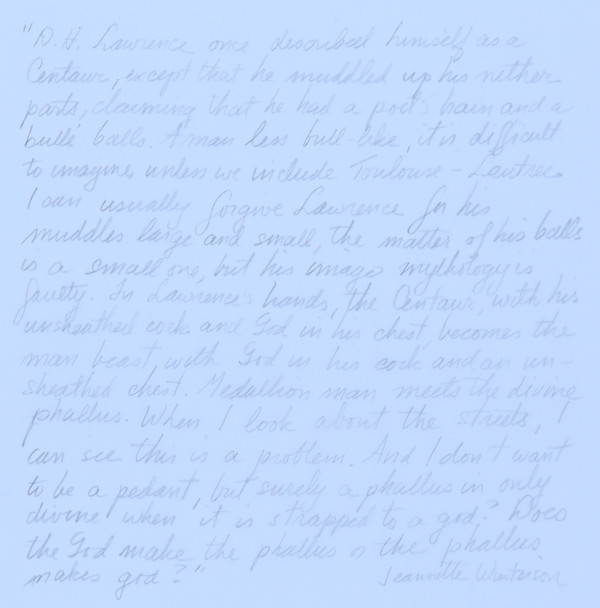 "D.H. Lawrence once described himself as a
Centaur, except that he muddled up his nether
parts, claiming that he had a poet's brain and a
bulls' balls. A man less bull-like, it is difficult
to imagine, unless we include Toulouse-Lautrec.
I can usually forgive Lawrence for his
muddles large and small, the matter of his balls
is a small one, but his image mythology is
faulty. In Lawrence's hands, the Centaur, with his
unsheathed cock and God in his chest, becomes the
man beast, with God in his cock and an un-
sheathed chest. Medallion man meets the divine
phallus. When I look about the streets, I
can see this is a problem. And I don't want
to be a pedant, but surely a phallus in only
divine when it is strapped to a god? Does
the God make the phallus or the phallus
makes god?" Jeannette Winterson